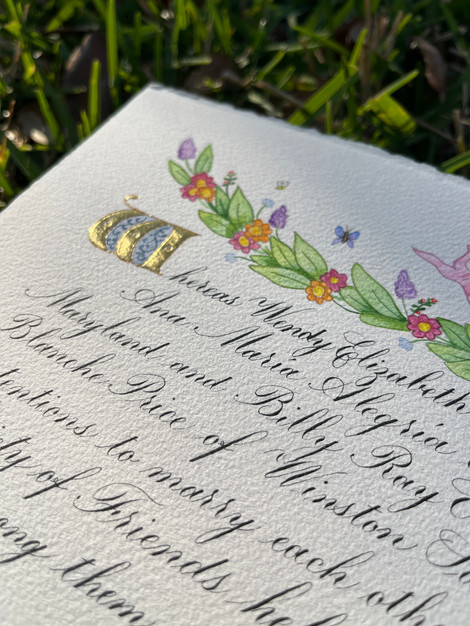 Whereas Wendy Elizabeth
Ana Maria Alegria
Maryland and Billy Ray
Blanche Price of Winston
tentions to marry each oth
ety of Friends hel
ong them